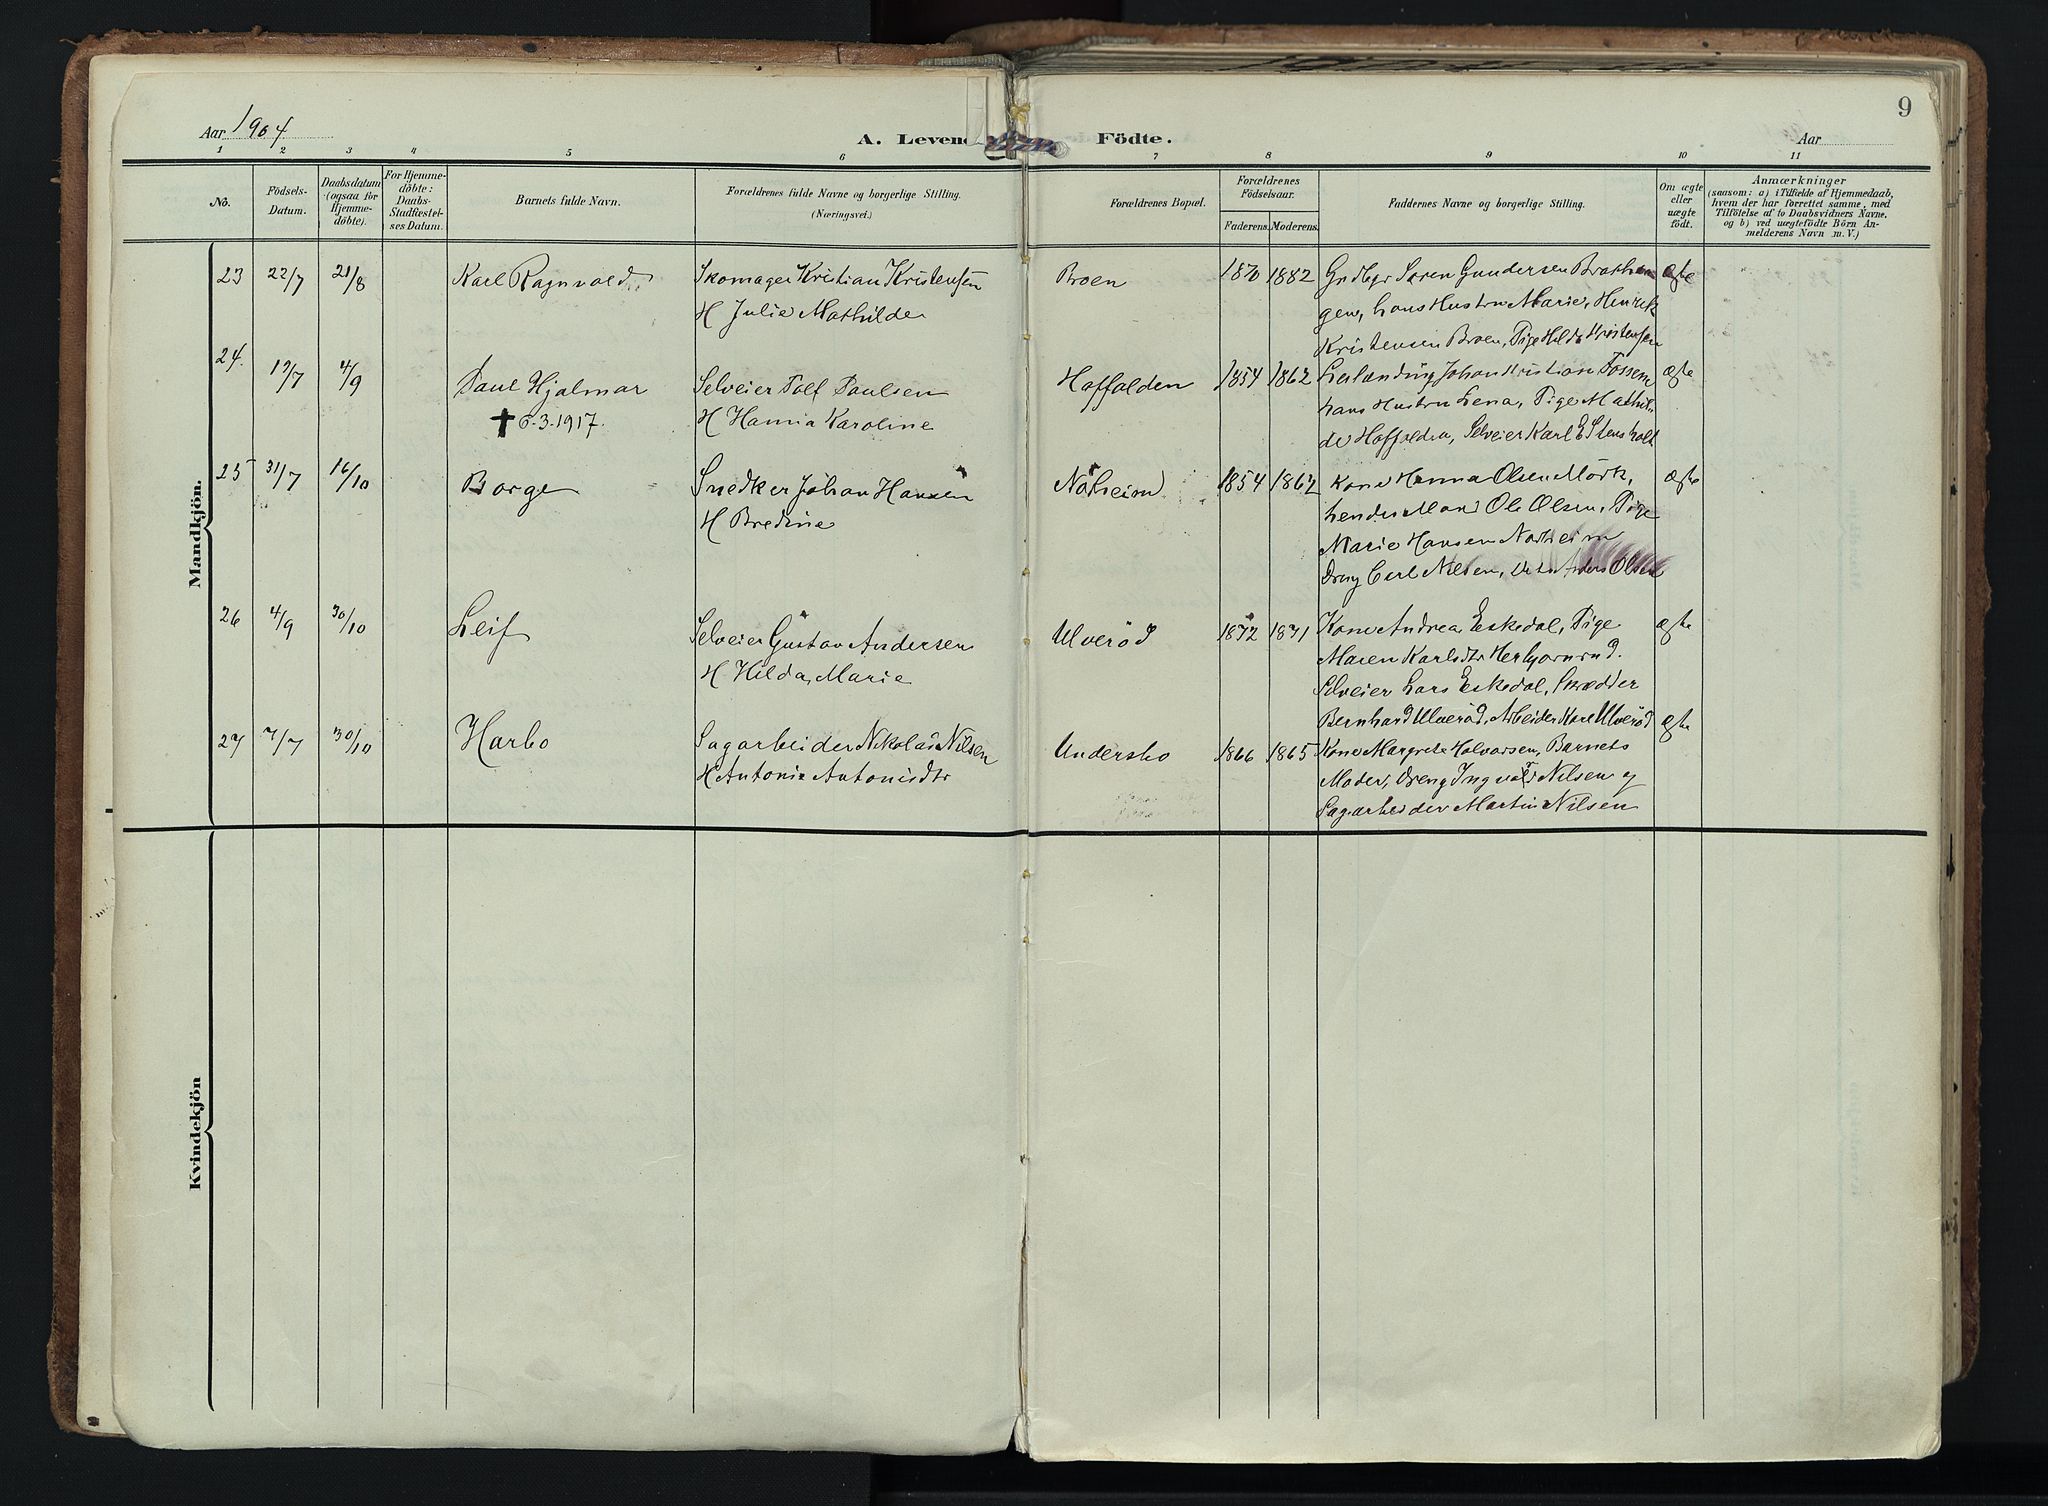 Aar 1904
A. Levende Födte.
Aar
9
1 2 3 4 5 6 7 8 9 10 11
Nô.
Födsels-Datum.
Daabsdatum (ogsaa for Hjemme-döbte).
For Hjemme-döbte: Daabs-Stadfæstel-ses Datum.
Barnets fulde Navn.
Forældrenes fulde Navne og borgerlige Stilling.
(Næringsvei.)
Forældrenes Bopæl.
Forældrenes Födselsaar.
Faderens. Moderens.
Faddernes Navne og borgerlige Stilling.
Om ægte eller uægte födt.
Anmærkninger
(saasom: a) i Tilfælde af Hjemmedaab,
hvem der har forrettet samme, med
Tilföielse af to Daabsvidners Navne,
og b) ved uægtefödte Börn An-
melderens Navn m. V.)
Mandkjön.
23 22/7 21/8 Karl Ragnvald Skomager Kristian Kristensen Broen 1870 1882 Grdbgr Søren Gundersen Brathau ægte
H Julie Mathilde gen, hans Hustru Marie, Henrik
Kristensen Broen, Pige Hilda Kristensen
24. 19/7 4/9 Paul Hjalmar Selveier Tolf Paulsen Haffalden 1854 1862 Johan Kristian Fossem ægte
✝ 6.3.1917. H Hanna Karoline hans Hustru Lena, Pige Mathil
de Haffalden, Selveier Karl E Stensholt
25 31/7 16/10 Borge Snedker Johan Hansen Nørheim 1854 1862 Kone Hanna Olsen Mörk, ægte
H Bredine hendes Mand Ole Olsen, Pige
Marie Hansen Norheim
Dreng Carl Nilsen, Anders Olsen
26 4/9 30/10 Leif Selveier Gustav Andersen Ulveröd 1872 1871 Kone Andrea Eskedal, Pige ægte
H Hilda Marie Maren Karlsdtr Herbjørnrud.
Selveier Lars Eskedal, Skrædder
Bernhard Ulveröd, Arbeider Kare Ulveröd
27 7/7 30/10 Harbo Sagarbeider Nikolai Nilsen Undersbo 1866 1865 Kone Margrete Halvorsen, Barnets ægte
H Antonie Antonisdtr Moder, Dreng Ingvald Nilsen og
Sagarbeider Martin Nilsen
Kvindekjön